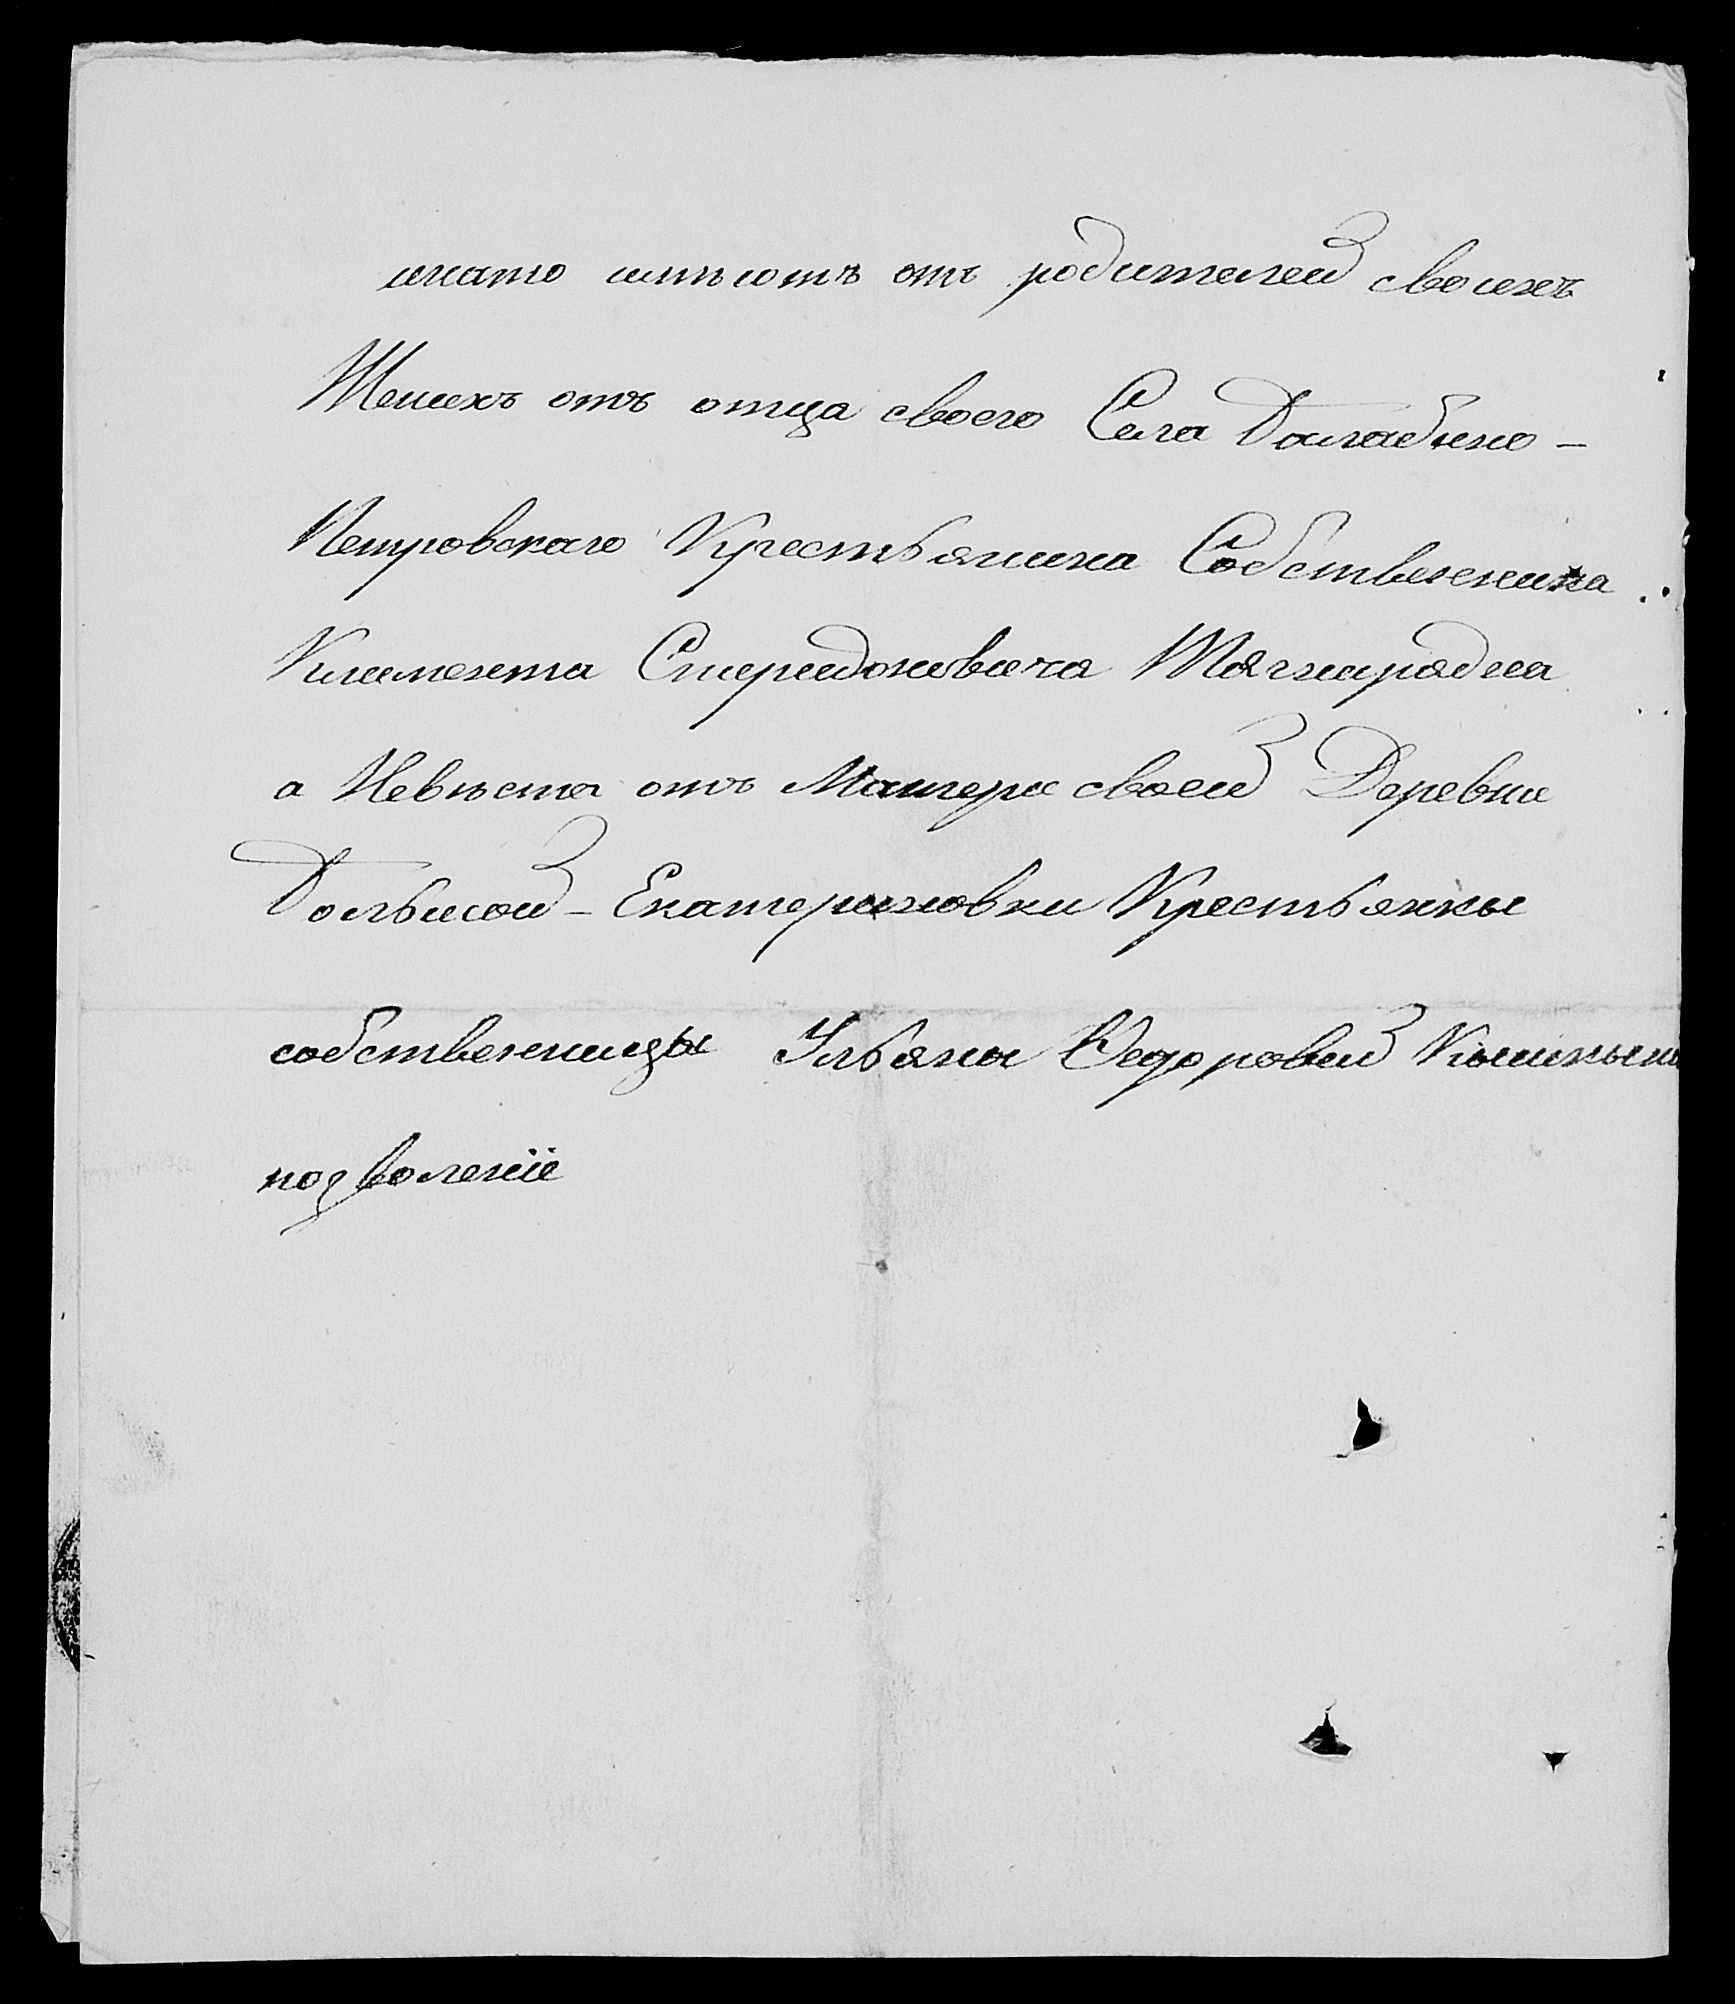 на то имѣютъ отъ родителей своихъ
Женихъ отъ отца своего Села Балабино-
Петровскаго Крестьянина Собственника
Климента Спиридоновича
а Невѣста отъ Матери своей Деревни
Большой-Екатериновки Крестьянкы
собственицы Ульяны Федоровой
позволеніе